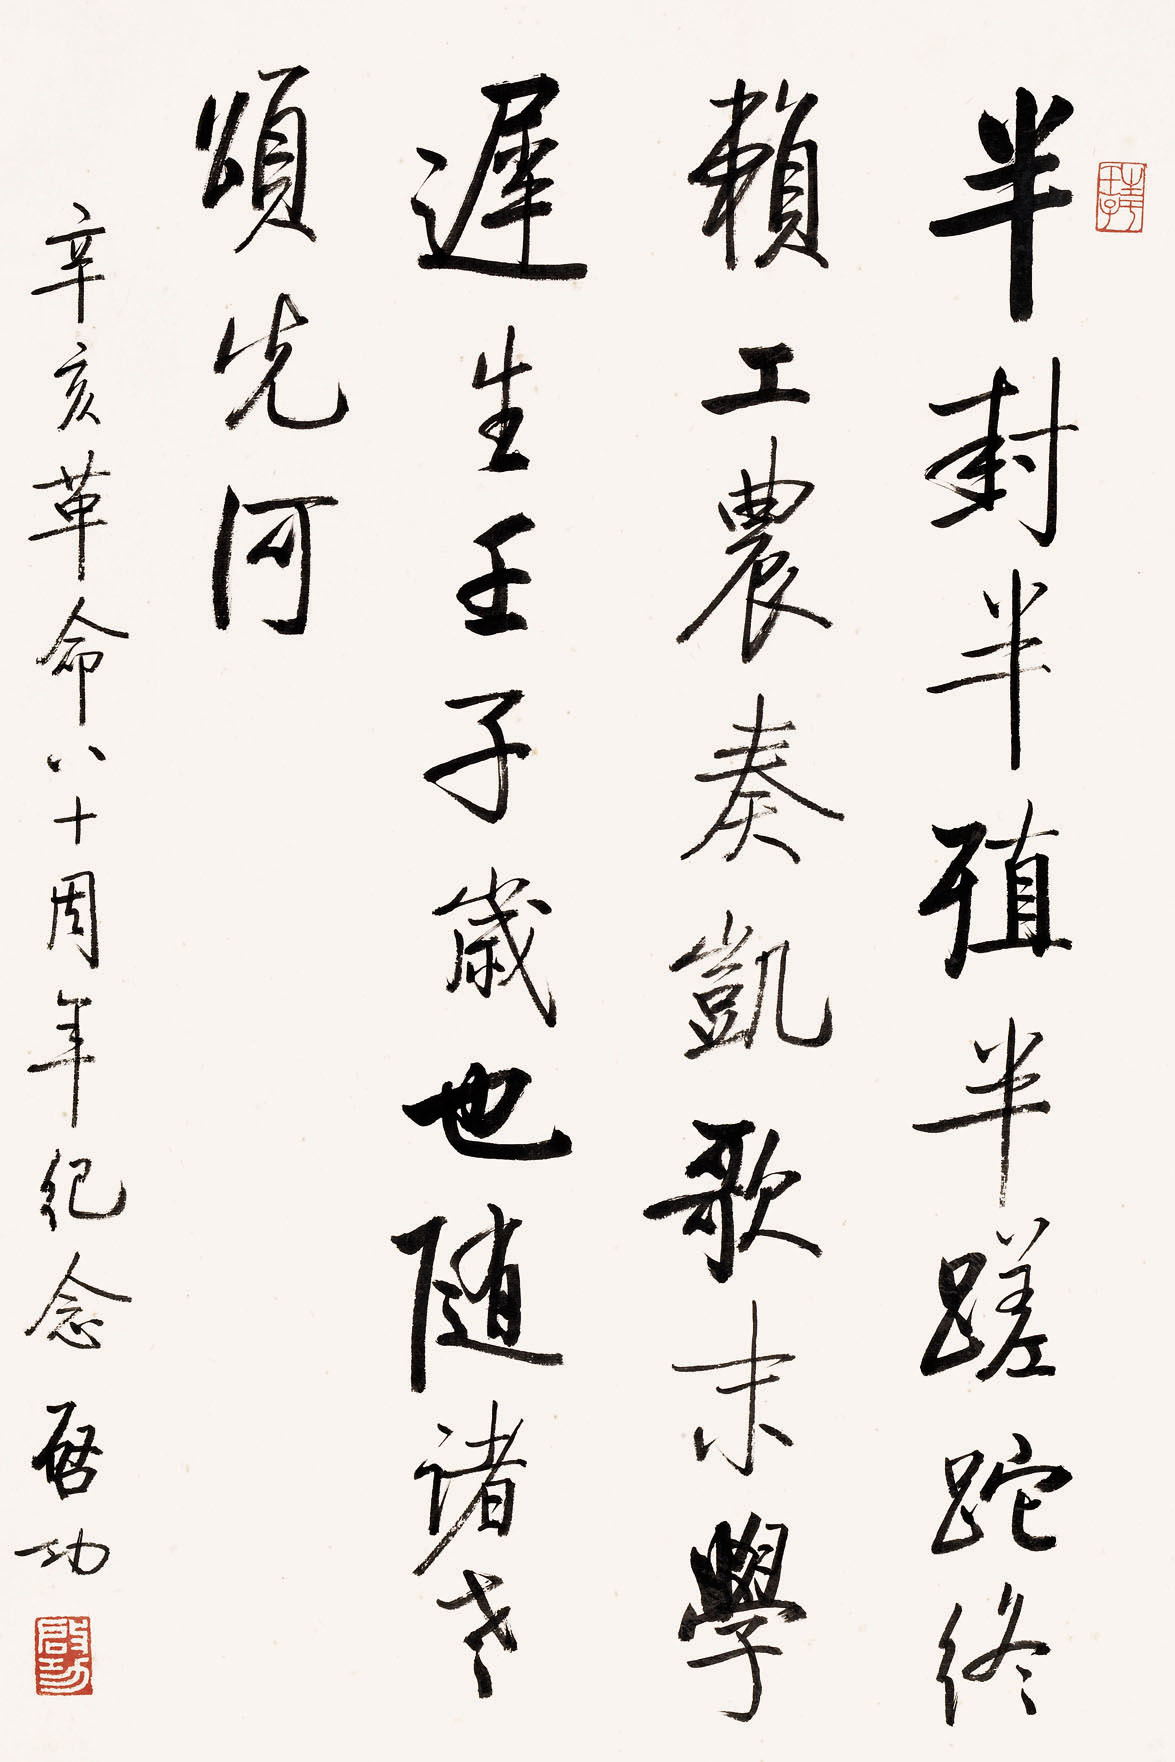 半封半殖半蹉跎終
賴工農奏凱歌末學
遲生壬子歲也随诸老
頌先河
辛亥革命八十周年纪念 启功
啟功